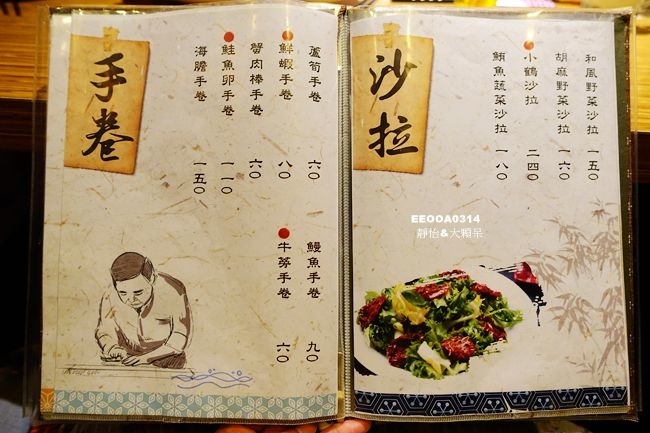 沙拉
和風野菜沙拉 一五〇
胡麻野菜沙拉 一六〇
小鶴沙拉 二四〇
鮪魚蔬菜沙拉 一八〇
EEOOA0314
靜怡&大顆呆
手卷
蘆筍手卷 六〇
鮮蝦手卷 八〇
蟹肉棒手卷 六〇
鮭魚卵手卷 一一〇
海膽手卷 一五〇
鰻魚手卷 九〇
牛蒡手卷 六〇